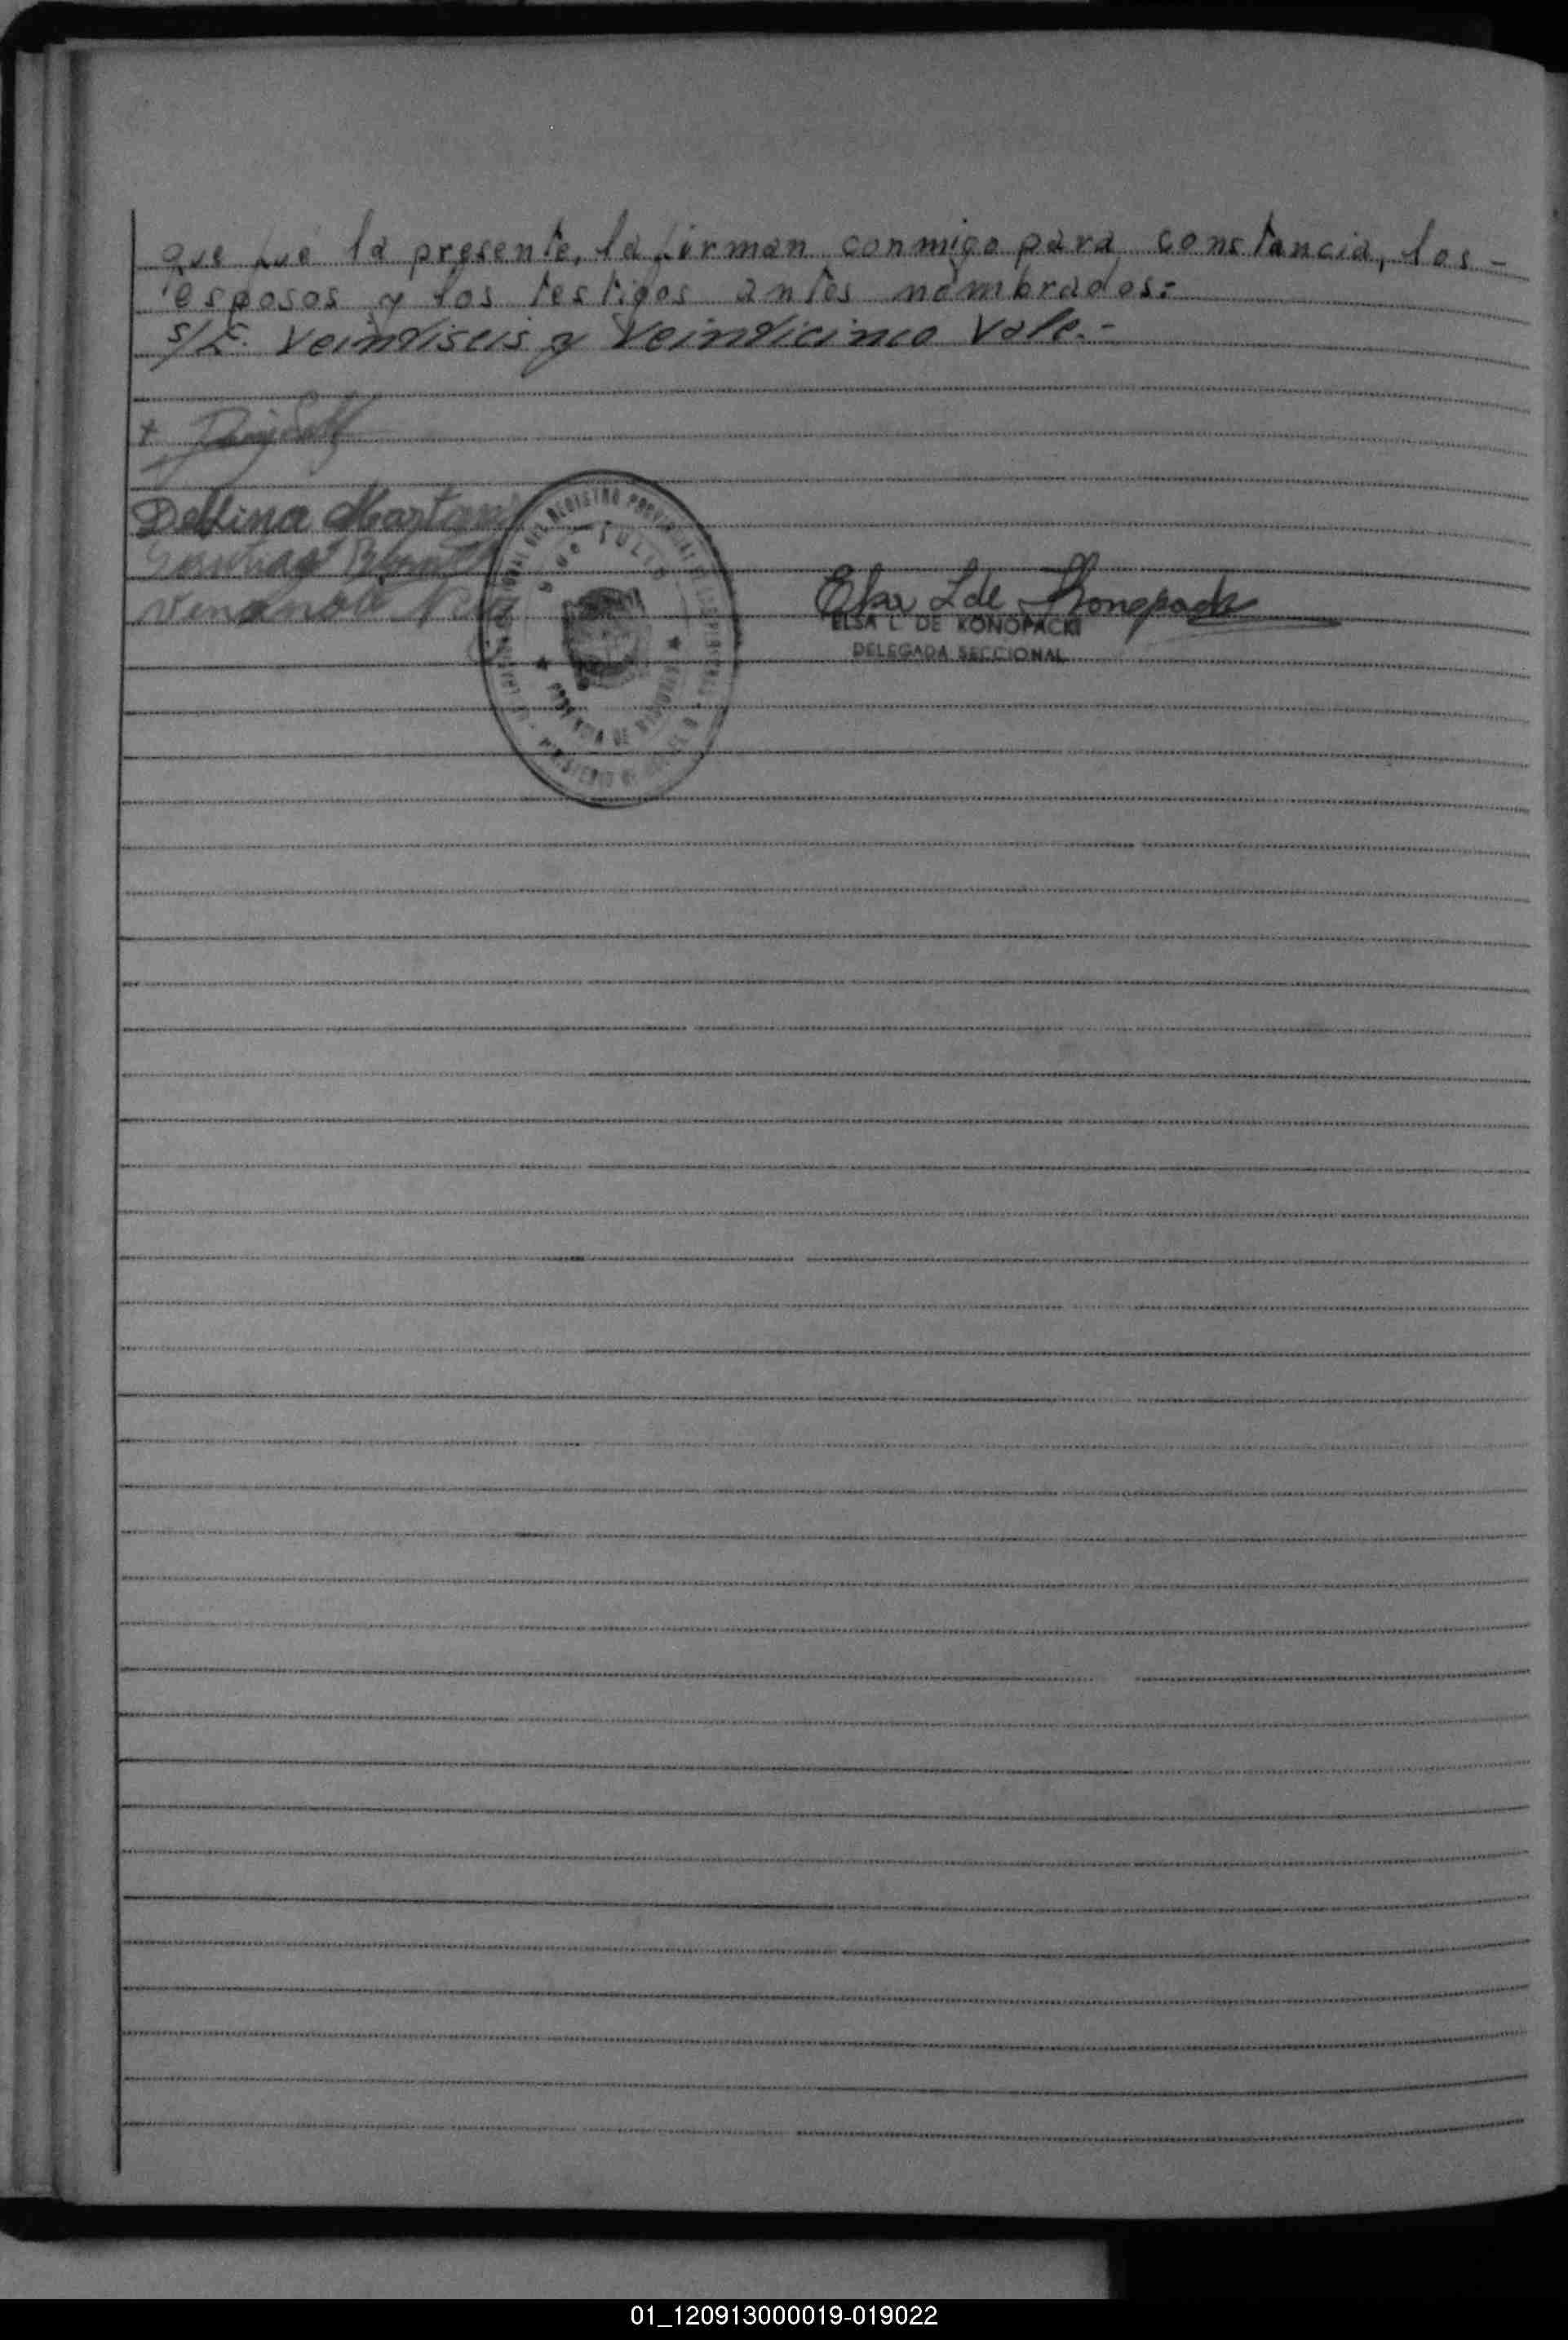 que fué la presente, la firman conmigo para constancia, los -
esposos y los testigos antes nombrados:
S/E. Veintiseis y Veinticinco Vale.-
Delfina
Elsa L de Konopacki
ELSA L. DE KONOPACKI
DELEGADA SECCIONAL
DEL REGISTRO PROVINCIAL DE LAS PERSONAS
9 DE JULIO
PROVINCIA DE MISIONES
MINISTERIO DE
01_120913000019-019022